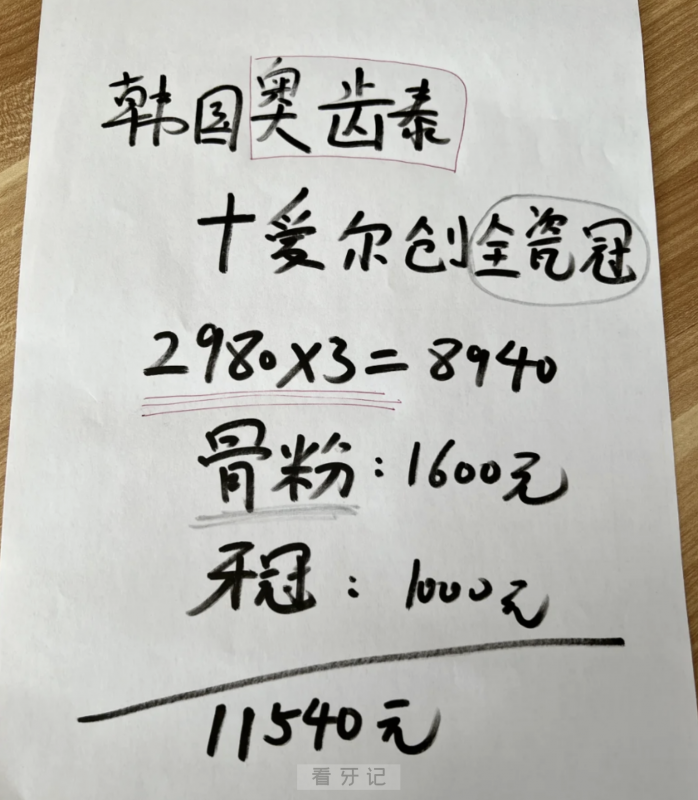 韩国奥齿泰
十爱尔创全瓷冠
2980×3=8940
骨粉:1600元
牙冠:1000元
11540元
看牙记